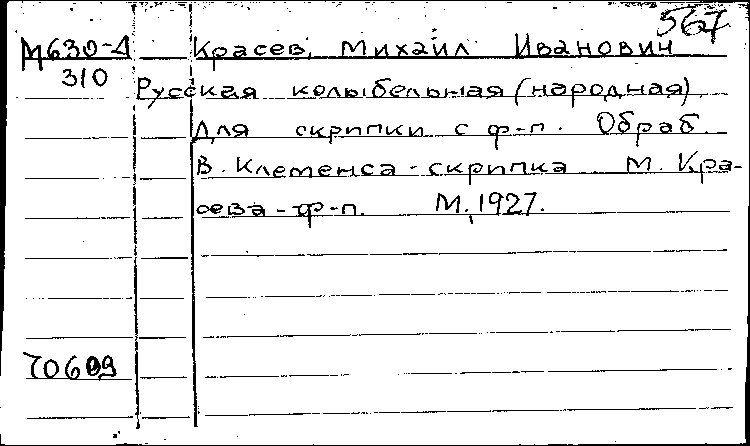 567
М630-Д Красев, Михаил Иванович
310 Русская колыбельная (народная)
Для скрипки с ф-п. Обраб.
В. Клеменса - скрипка М. Кра-
сева - ф-п. М., 1927.
70609